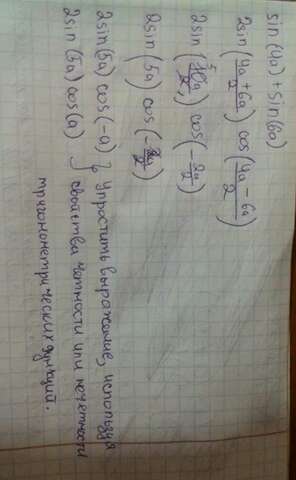 sin(4a) + sin(6a)
2sin(4a+6a/2) cos(4a-6a/2)
2sin(10a/2) cos(-2a/2)
2sin(5a) cos(-2a/2)
2sin(5a) cos(-a) } Упростить выражение, используя
2sin(5a) cos(a) } свойства четности или нечетности
тригонометрических функций.